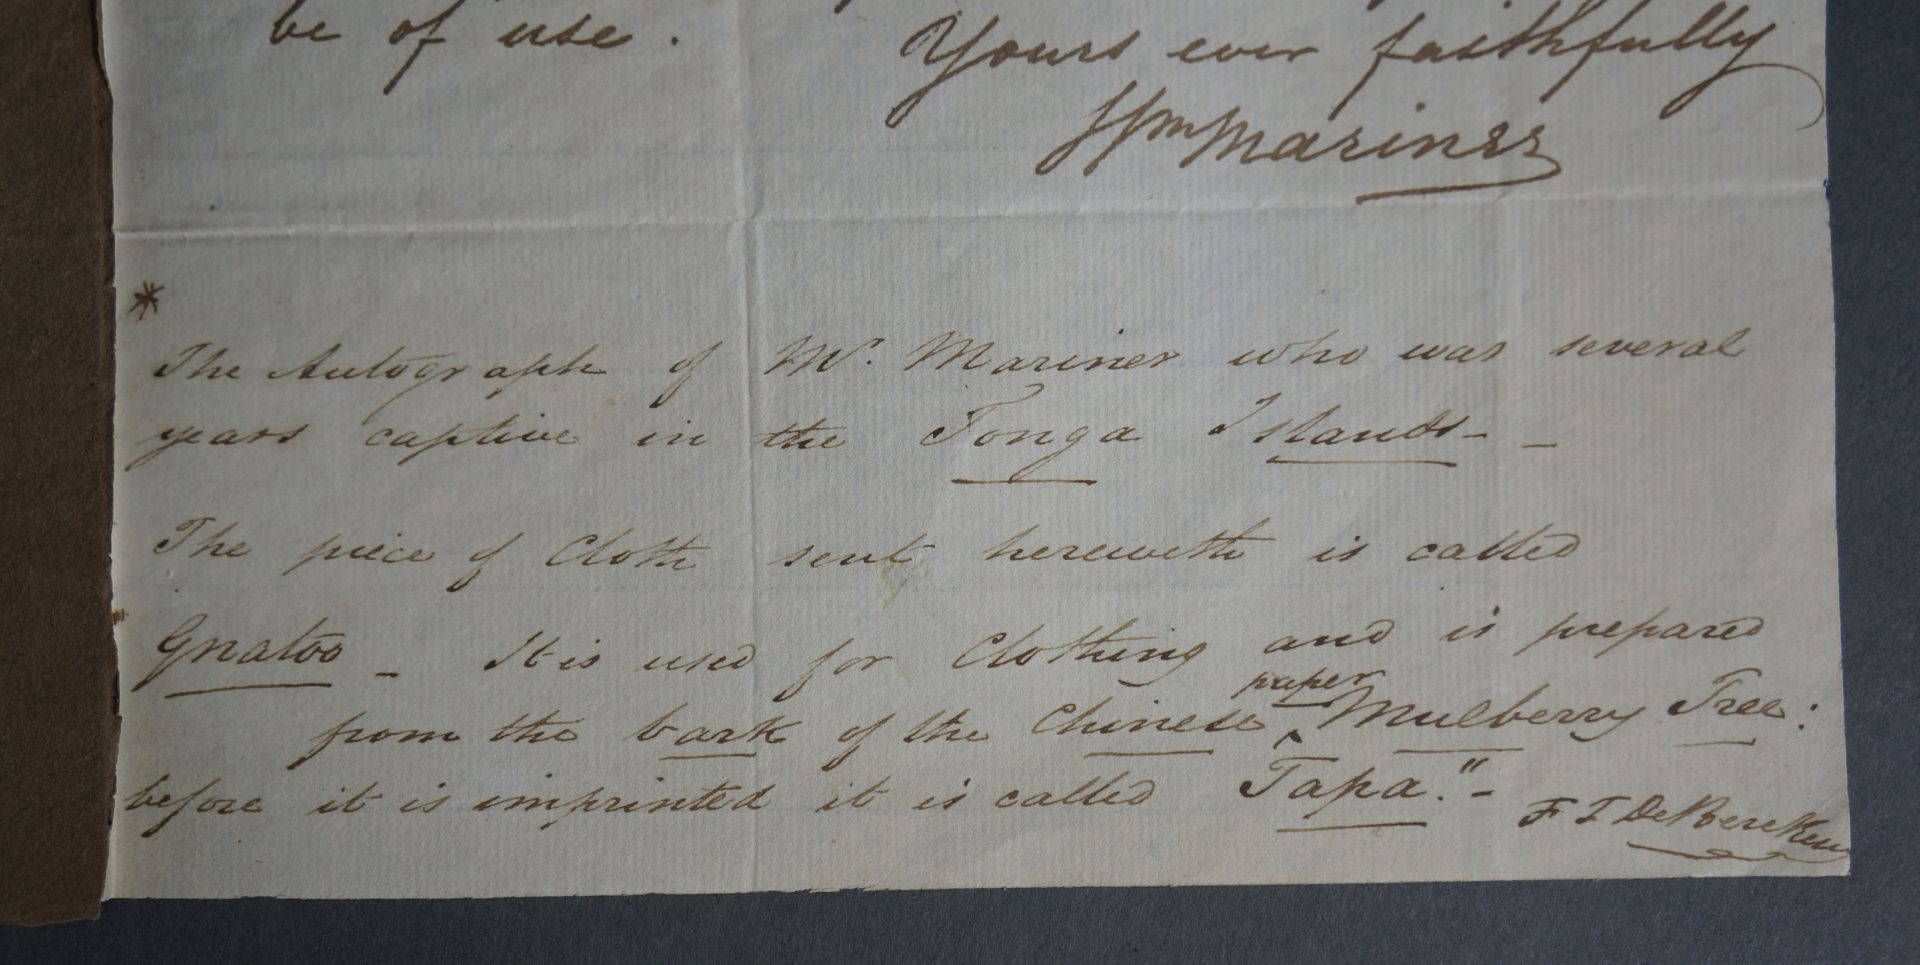 be of use.
Yours ever faithfully
Wm Mariner
*
The Autograph of Mr. Mariner who was several
years captive in the Tonga Islands - -
The piece of Cloth sent herewith is called
Gnatoo - It is used for Clothing and is prepared
paper
from the bark of the Chinese ^ Mulberry Tree:
before it is imprinted it is called Tapa." -
F I De